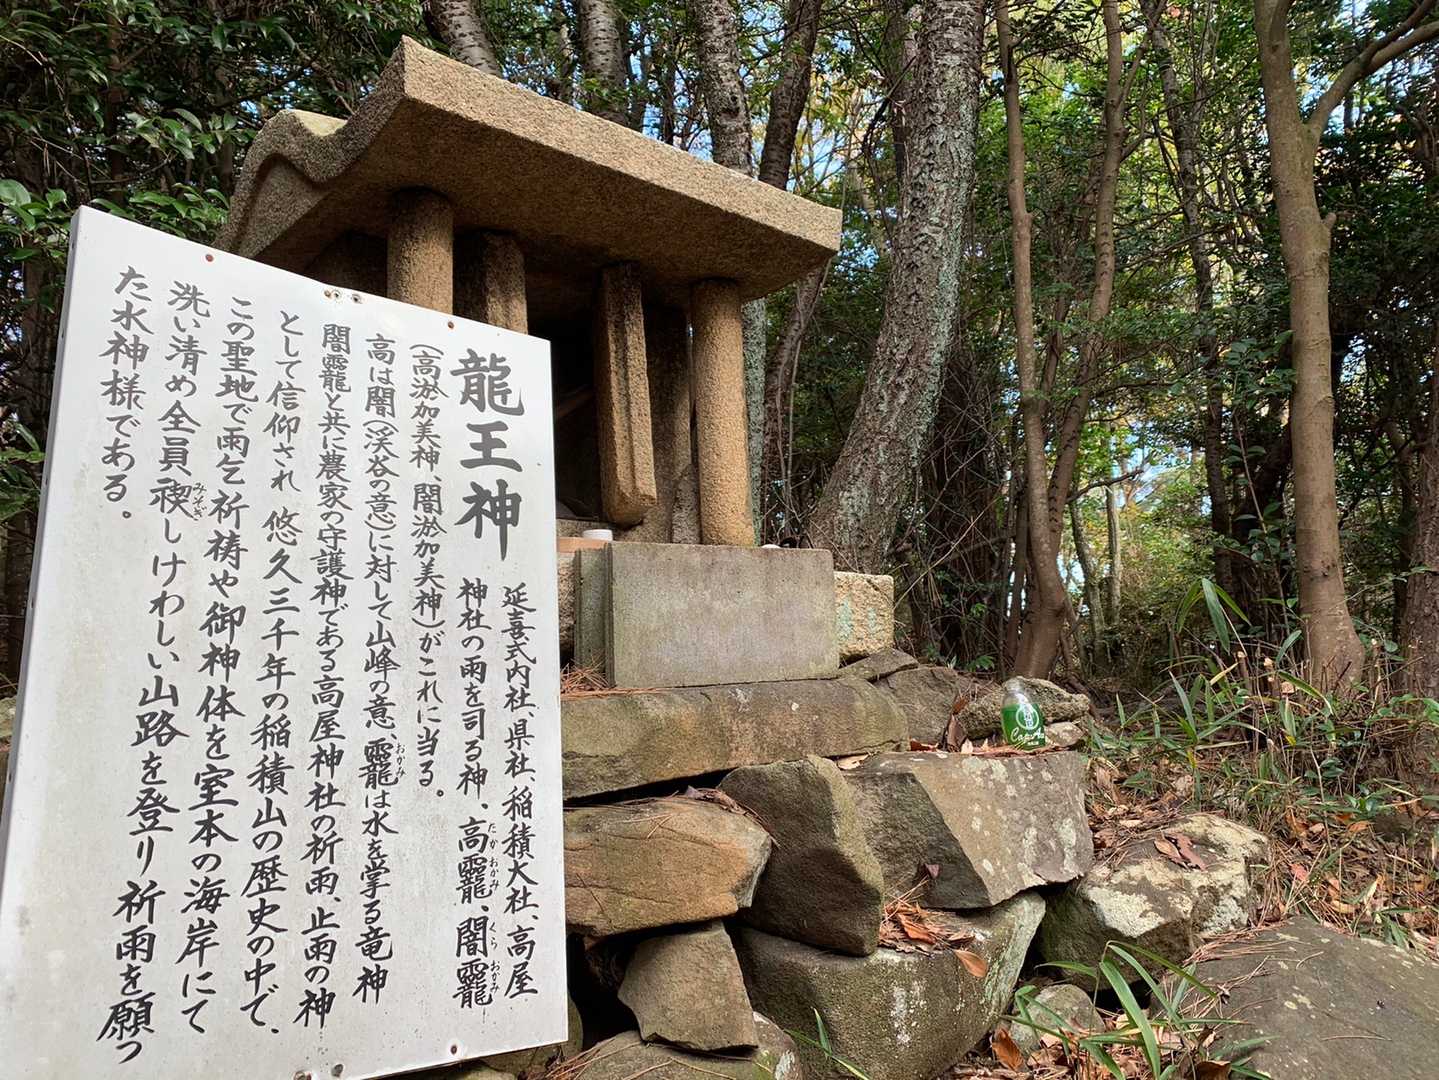 龍王神
延喜式内社、県社、稲積大社、高屋
神社の雨を司る神、高龗、闇龗
たかおかみ
くらおかみ
(高淤加美神、闇淤加美神)がこれに当る。
高は闇(渓谷の意)に対して山峰の意、龗は水を掌る竜神
おかみ
闇龗と共に農家の守護神である高屋神社の祈雨、止雨の神
として信仰され 悠久三千年の稲積山の歴史の中で、
この聖地で雨乞祈祷や御神体を室本の海岸にて
洗い清め全員禊しけわしい山路を登り祈雨を願っ
みそぎ
た水神様である。